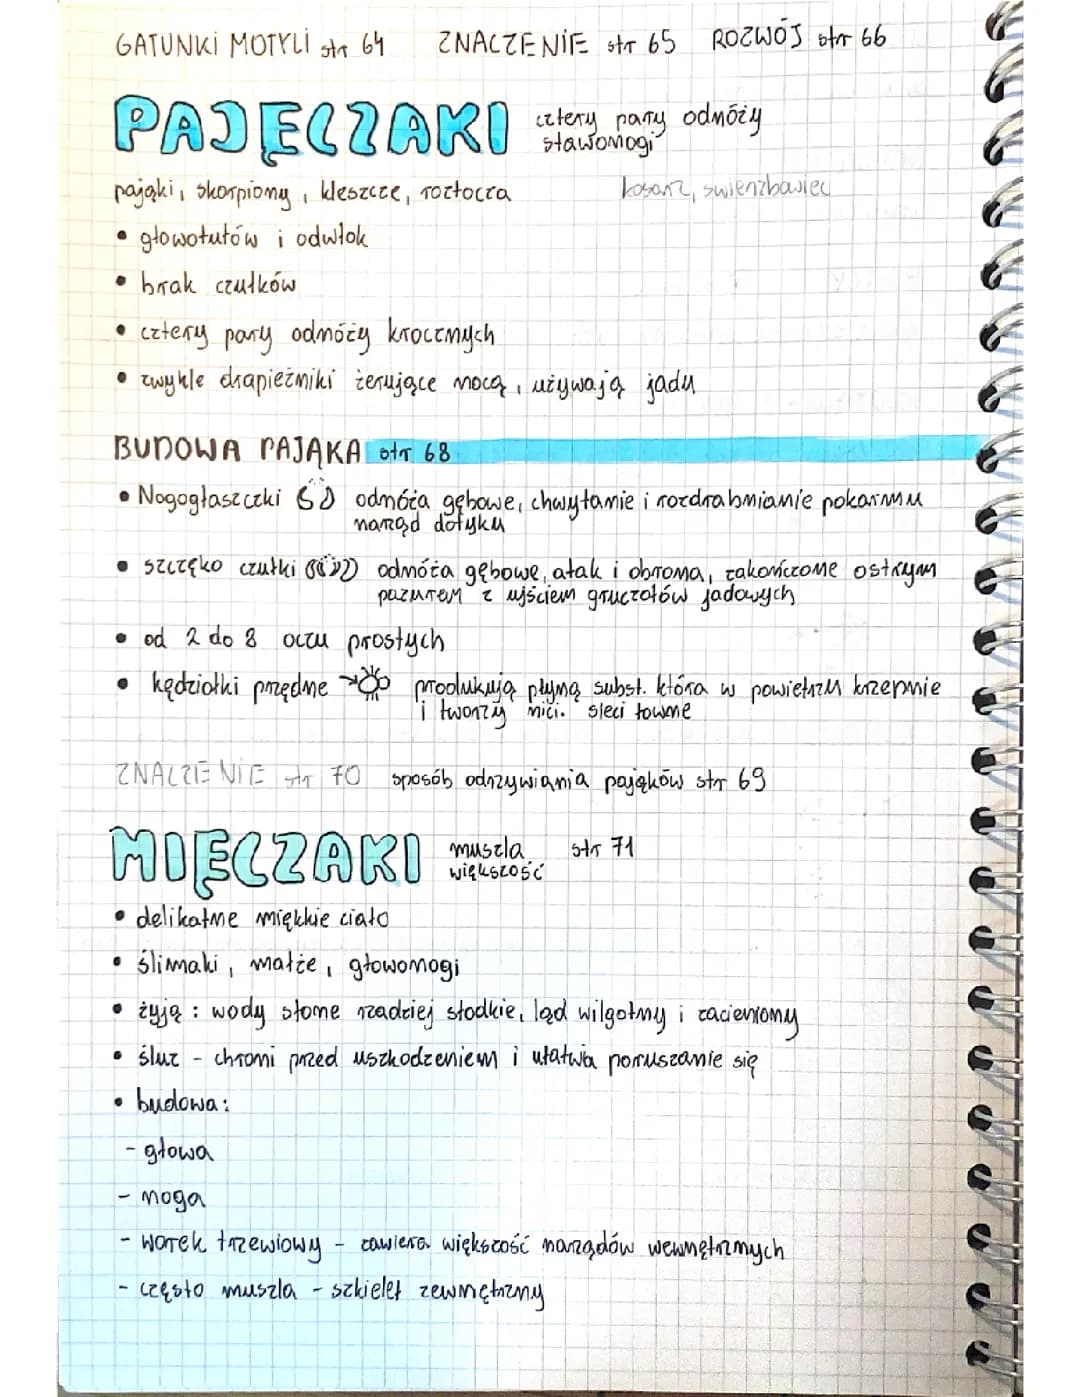 GATUNKI MOTYLI str 64 ZNACZENIE str 65 ROZWÓJ str 66
PAJĘCZAKI cztery pary odnóży
stawonogi
pająki, skorpiony, kleszcze, roztocza kosarz, świerzbowiec
• głowotułów i odwłok
• brak czułków
• cztery pary odnóży krocznych
• zwykle drapieżniki żerujące nocą, używają jadu
BUDOWA PAJĄKA str 68
• Nogogłaszczki odnóża gębowe, chwytanie i rozdrabnianie pokarmu
narząd dotyku
• szczęko czułki odnóża gębowe, atak i obrona, zakończone ostrym
pazurem z ujściem gruczołów jadowych
• od 2 do 8 oczu prostych
• kędziołki przędne produkują płynną subst. która w powietrzu krzepnie
i tworzy nici. sieci łowne
ZNACZENIE str 70 sposób odrzywiania pająków str 69
MIĘCZAKI muszla str 71
większość
• delikatne miękkie ciało
• ślimaki, małże, głowonogi
• żyją : wody słone rzadziej słodkie, ląd wilgotny i zacieniony
• śluz - chroni przed uszkodzeniem i ułatwia poruszanie się
• budowa:
- głowa
- noga
- worek trzewiowy - zawiera większość narządów wewnętrznych
- często muszla - szkielet zewnętrzny